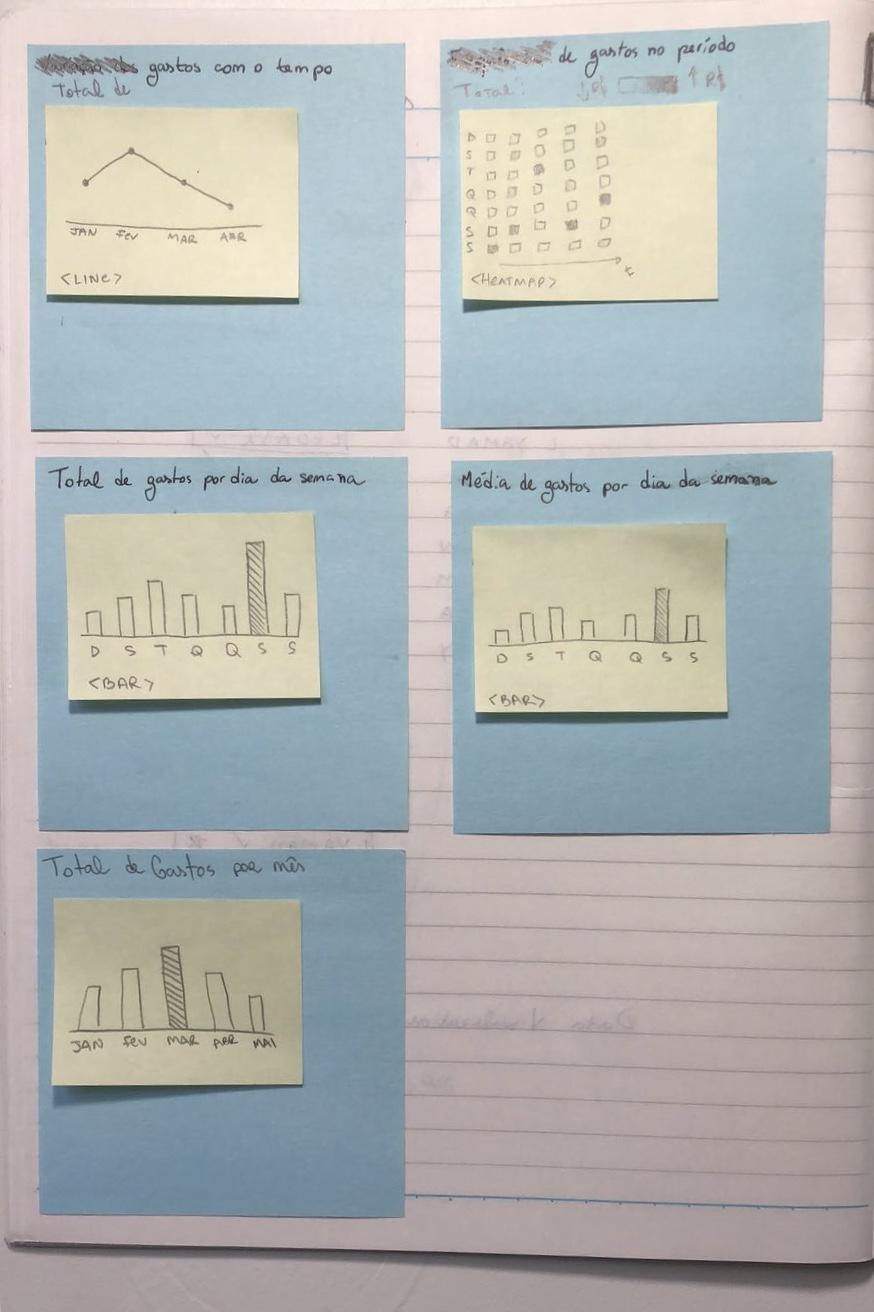 gastos com o tempo
Total de
JAN FEV MAR ABR
<LINE>
de gastos no período
Total: ↓R$ ↑R$
D
S
T
Q
Q
S
S
t
<HEATMAP>
Total de gastos por dia da semana
D S T Q Q S S
<BAR>
Média de gastos por dia da semana
D S T Q Q S S
<BAR>
Total de Gastos por mês
JAN FEV MAR ABR MAI